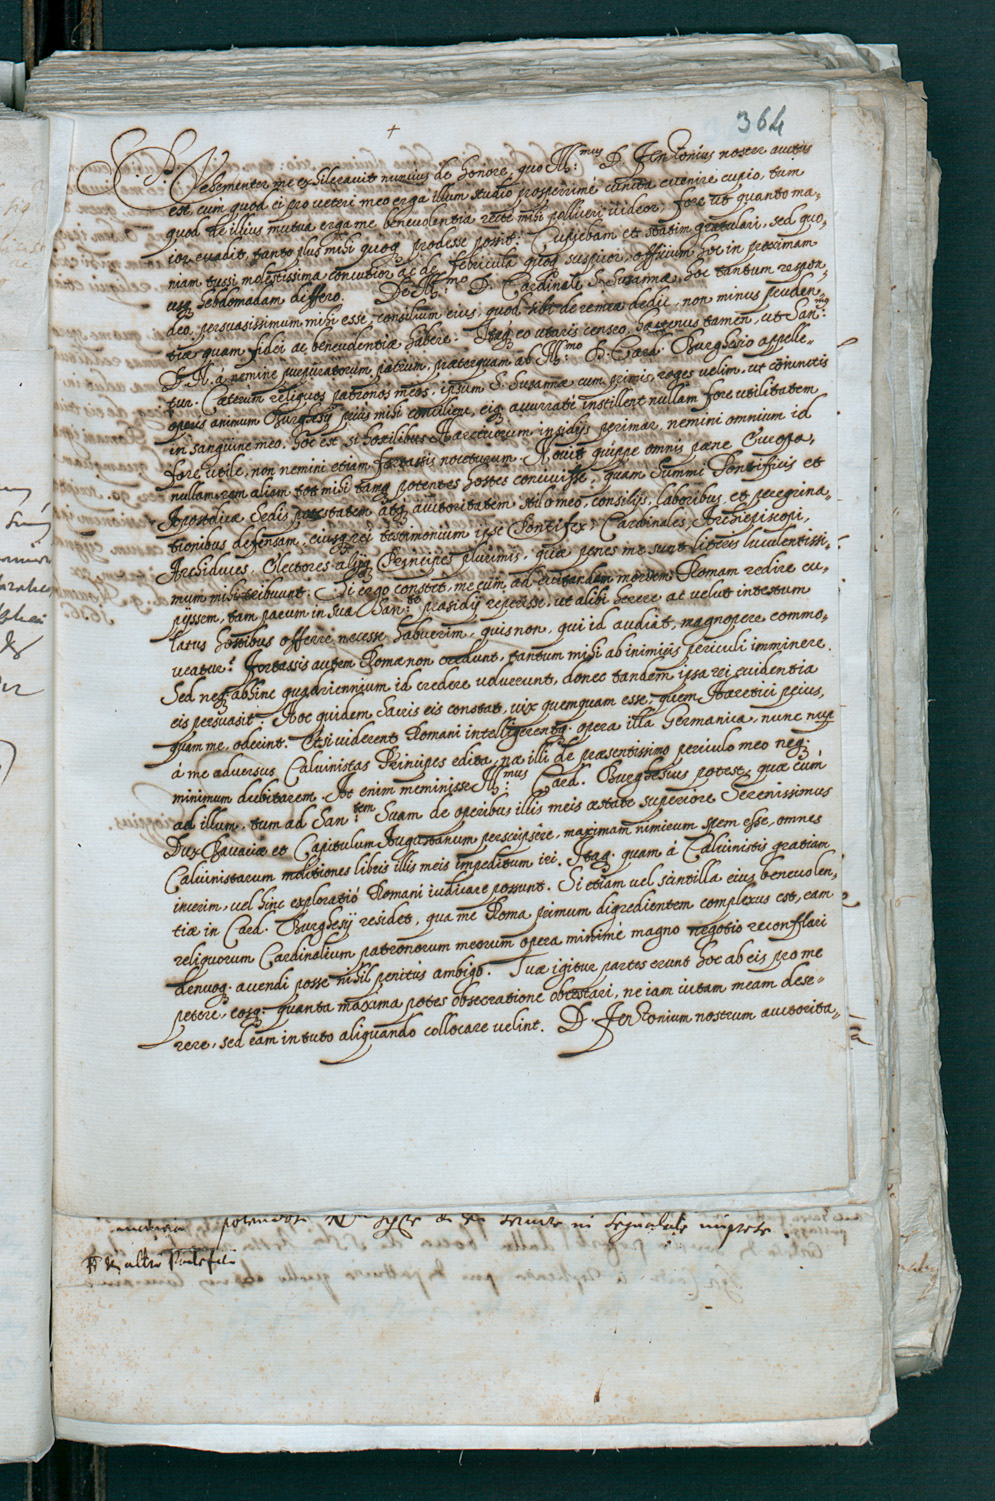 364
+
S. P. Vehementer me exhileravit nuncius de honore, quo Ill.mus D. Jentonius noster auctus
est, cum quod ei pro veteri meo erga illum studio prosperrimè cuncta evenire cupio, tum
quod de illius mutua erga me benevolentia recte mihi polliceri videor, fore ut quanto ma-
ior evadit, tanto plus mihi quoq prodesse possit. Cupiebam et statim gratulari, sed quo-
niam tussi molestissima concutior ac de febricula quoq suspicor, officium hoc in proximam
usq hebdomadam differo. De Ill.mo D. Cardinali S. Susannæ hoc tantum respon-
deo, persuasissimum mihi esse, consilium eius, quod tibi de rem ea dedit, non minus pruden-
tiæ quam fidei ac benevolentiæ habere. Itaq eo utaris censeo, hactenus tamen, ut San.
D. N. à nemine purpuratorum patrum, præterquam ab Ill.mo D. Card. Burghesio appelle-
tur. Cæterum reliquos patronos meos, ipsum S. Susannæ cum primis, roges velim, ut coniunctis
operis animum Burghesij prius mihi concilient, eiq accurratè instillent nullam fore utilitatem
in sanguine meo, hoc est, si hostilibus Hæreticorum insidijs perimar, nemini omnium id
fore utile, non nemini etiam fortassis nociturum. Novit quippe omnis pæne Europa,
nullam rem aliam tot mihi tamq potentes hostes concivisse, quam Summi Pontificis et
Apostolicæ Sedis potestatem atq auctoritatem stilo meo, consilijs, laboribus, et peregrina-
tionibus defensam, cuiusq rei testimonium ipse Pontifex, Cardinales, Archiepiscopi,
Archiduces, Electores alijq Principes plurimis, quæ penes me sunt literis luculentissi-
mum mihi tribuunt. Si ergo constet, me cum ad evitandam mortem Romam redire cu-
pijssem, tam parum in Sua San.te præsidij reperisse, ut alibi hærere ac velut intestum
latus hostibus offerre necesse habuerim, quis non, qui id audiat, magnopere commo-
veatur? Fortassis autem Romæ non credunt, tantum mihi ab inimicis periculi imminere.
Sed neq abhinc quadriennium id credere voluerunt, donec tandem ipsa rei evidentia
eis persuasit. Hoc quidem satis eis constat, vix quemquam esse, quem Hæretici peius,
quam me, oderint. Et si viderent Romani intelligerentq opera illa Germanica, nunc nup
à me adversus Calvinistas Principes edita, næ illi de præsentissimo periculo meo neq
minimum dubitarent. At enim meminisse Ill.mus Card. Burghesius potest, quæ cùm
ad illum, tum ad San.tem Suam de operibus illis meis æstate superiore Serenissimus
Dux Bavariæ et Capitulum Augustanum perscripsere, maximam nimirum spem esse, omnes
Calvinistarum molitiones libris illis meis impeditum iri. Itaq quam à Calvinistis gratiam
inierim, vel hinc exploratiò Romani iudicare possunt. Si etiam vel scintilla eius benevolen-
tiæ in Card. Burghesij residet, qua me Roma primum digredientem complexus est, eam
reliquorum Cardinalium patronorum meorum opera minime magno negotio reconflari
denuoq accendi posse nihil penitus ambigo. Tuæ igitur partes erunt hoc ab eis pro me
petere, eosq quanta maxima potes obsecratione obtestari, ne iam vitam meam dese-
rere, sed eam in tuto aliquando collocare velint. D. Jentonium nostrum auctorita-